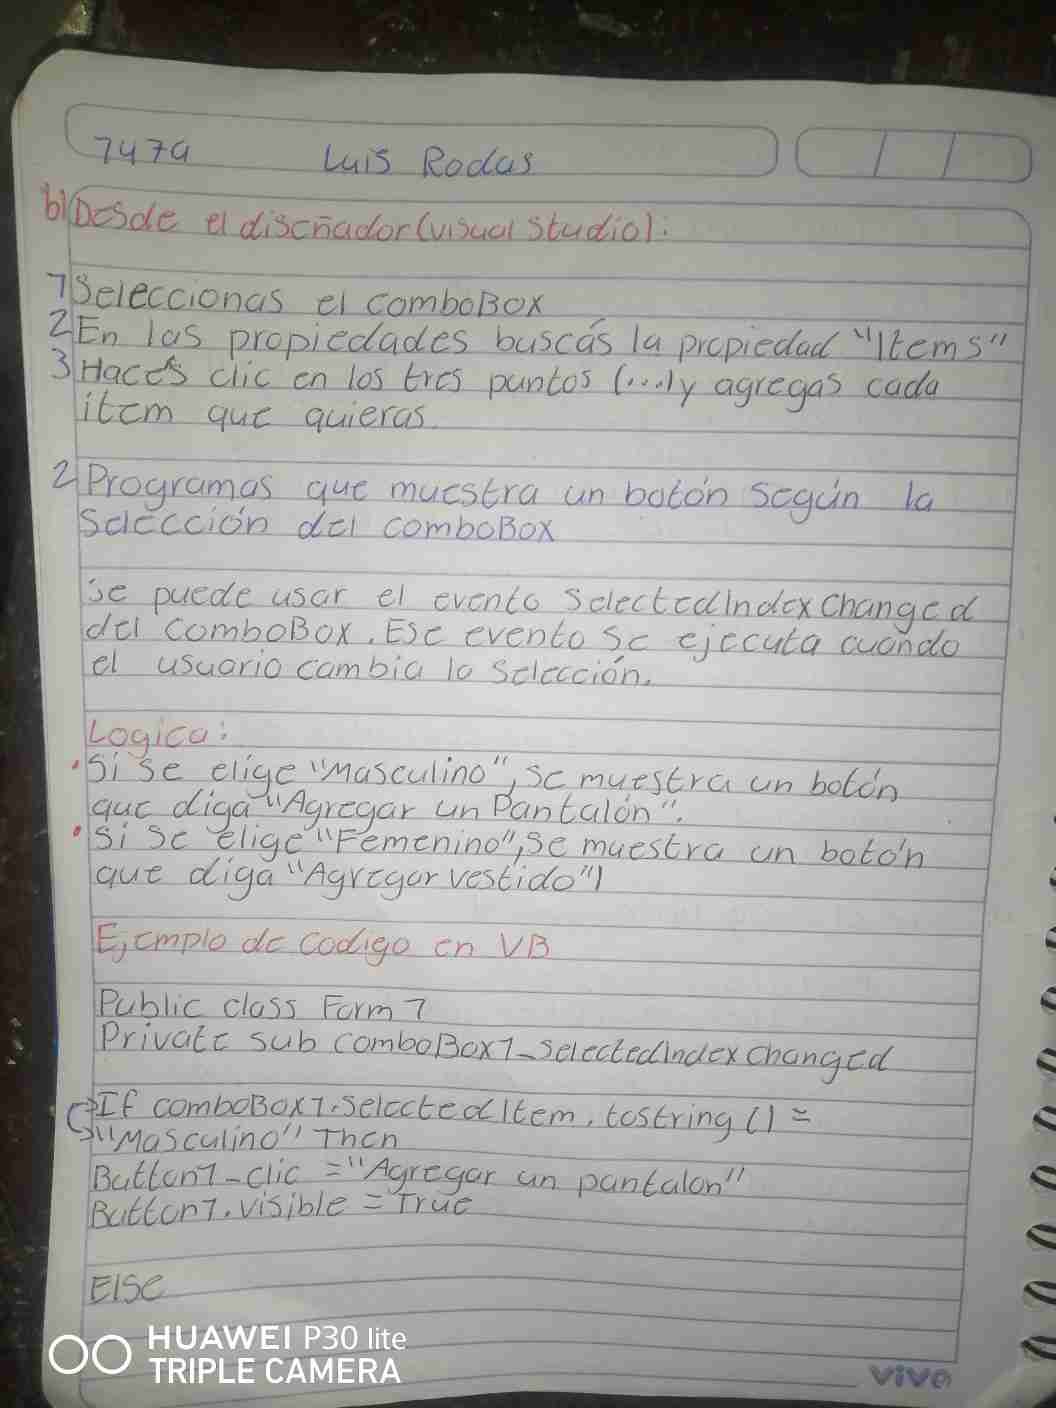 7479 Luis Rodas
b) Desde el diseñador (visual studio):
1 Seleccionas el comboBox
2 En las propiedades buscás la propiedad "Items"
3 Haces clic en los tres puntos (...) y agregas cada
item que quieras.
2 Programas que muestra un botón según la
Selección del comboBox
Se puede usar el evento SelectedIndexChanged
del ComboBox. Ese evento se ejecuta cuando
el usuario cambia la selección.
Logica:
• Si se elige "Masculino", se muestra un botón
que diga "Agregar un Pantalón".
• Si se elige "Femenino", se muestra un botón
que diga "Agregar vestido")
Ejemplo de codigo en VB
Public class Form 1
Private sub comboBox1_SelectedIndexChanged
If comboBox1.SelectedItem.tostring () =
"Masculino" Then
Button1_clic = "Agregar un pantalon"
Button1.visible = True
Else
HUAWEI P30 lite
TRIPLE CAMERA
vivo